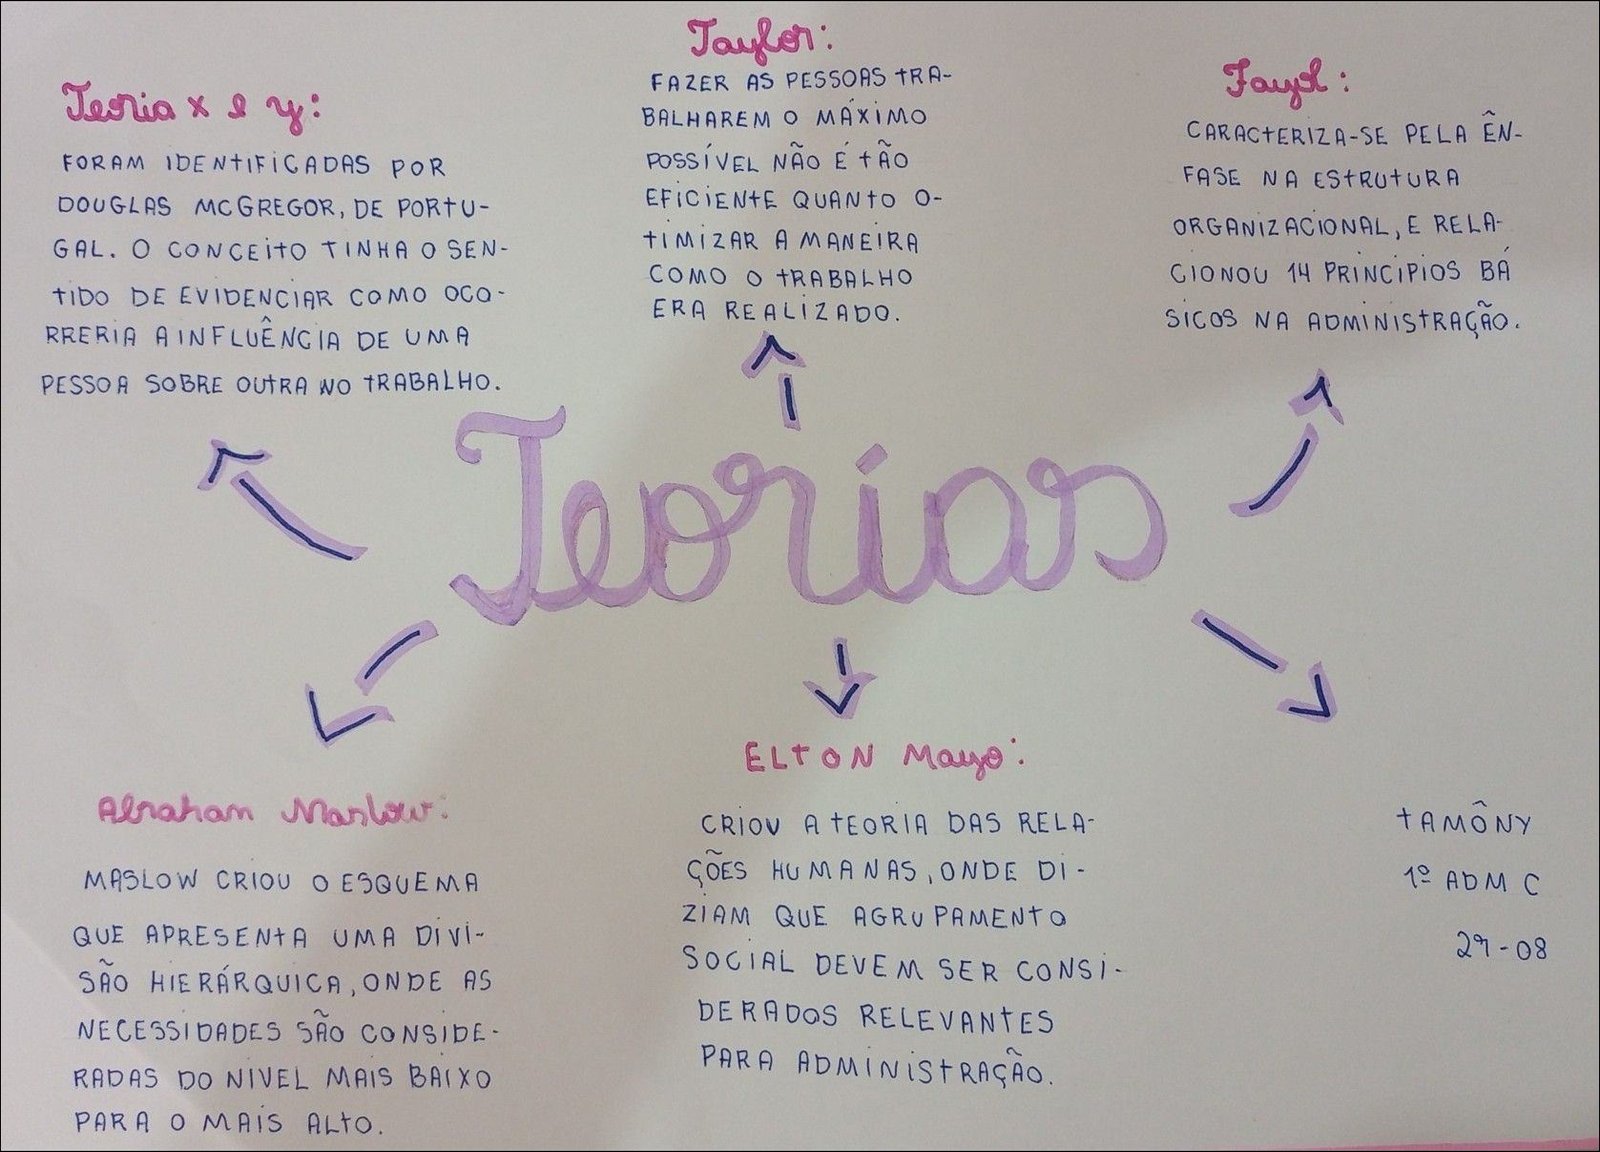 Teoria x e y:
FORAM IDENTIFICADAS POR
DOUGLAS MCGREGOR, DE PORTU-
GAL. O CONCEITO TINHA O SEN-
TIDO DE EVIDENCIAR COMO OCO-
RRERIA A INFLUÊNCIA DE UMA
PESSOA SOBRE OUTRA NO TRABALHO.
Taylor:
FAZER AS PESSOAS TRA-
BALHAREM O MÁXIMO
POSSÍVEL NÃO É TÃO
EFICIENTE QUANTO O-
TIMIZAR A MANEIRA
COMO O TRABALHO
ERA REALIZADO.
Fayol:
CARACTERIZA-SE PELA ÊN-
FASE NA ESTRUTURA
ORGANIZACIONAL, E RELA-
CIONOU 14 PRINCIPIOS BÁ
SICOS NA ADMINISTRAÇÃO.
Teorias
Abraham Maslow:
MASLOW CRIOU O ESQUEMA
QUE APRESENTA UMA DIVI-
SÃO HIERÁRQUICA, ONDE AS
NECESSIDADES SÃO CONSIDE-
RADAS DO NIVEL MAIS BAIXO
PARA O MAIS ALTO.
ELTON Mayo:
CRIOU A TEORIA DAS RELA-
ÇÕES HUMANAS, ONDE DI-
ZIAM QUE AGRUPAMENTO
SOCIAL DEVEM SER CONSI-
DERADOS RELEVANTES
PARA ADMINISTRAÇÃO.
TAMÔNY
1º ADM C
29-08